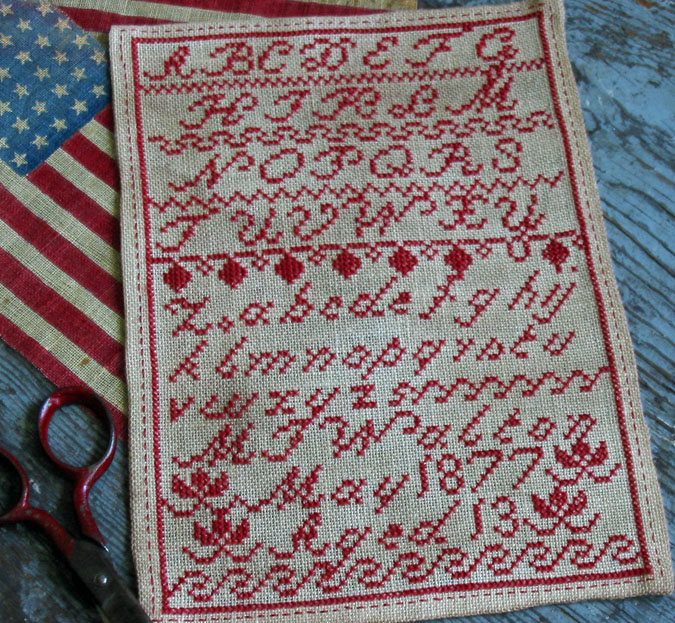 A B C D E F G
H I K L M
N O P Q R S
T U V W X Y
Z. a b c d e f g h ij
k l m n o p q r s t u
v w x y z
M J Walton
May 1877
Aged 13